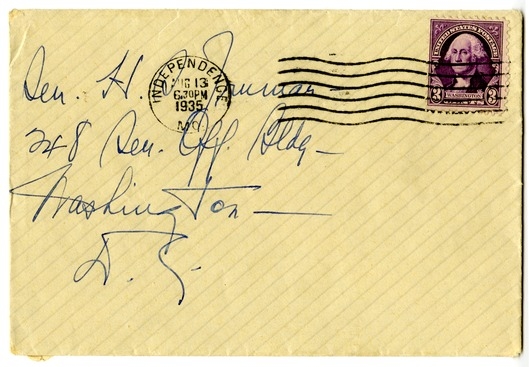 INDEPENDENCE
AUG 13
6:30PM
1935
MO.
UNITED STATES POSTAGE
WASHINGTON
3 3
Sen. H. S. Truman —
248 Sen. Off. Bldg —
Washington —
D. C.